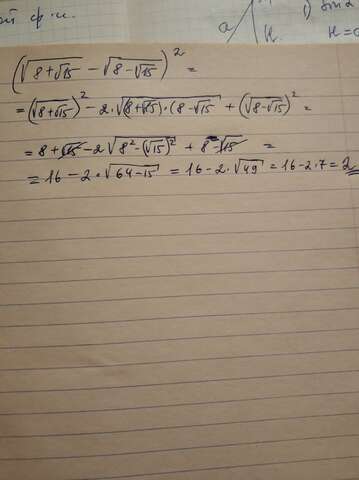 ф-и.
1) sin α
a
H
H=
(√(8+√15) - √(8-√15))² =
= (√(8+√15))² - 2·√(8+√15)·(8-√15 + (√(8-√15))² =
= 8+√15 - 2√(8²-(√15)²) + 8-√15 =
= 16-2·√(64-15) = 16-2·√49 = 16-2·7=2